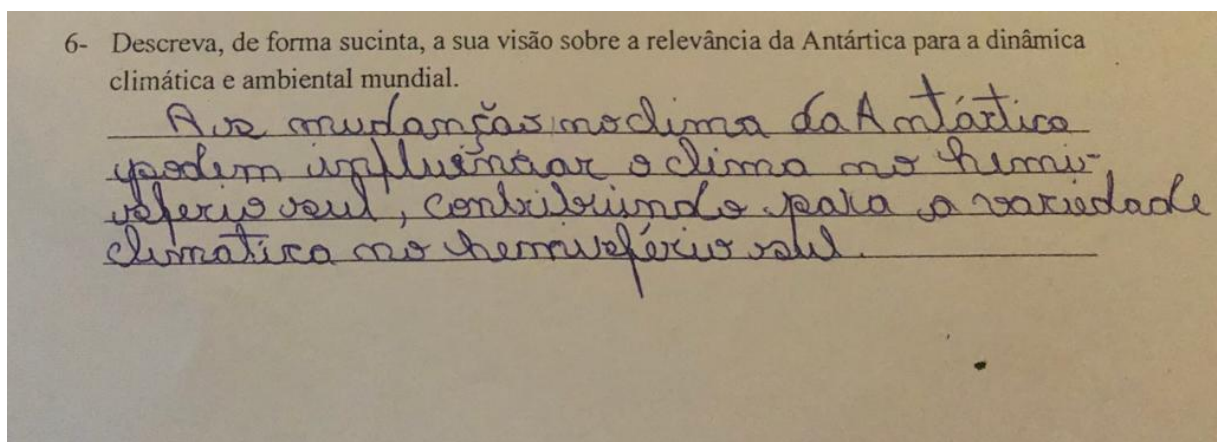 6- Descreva, de forma sucinta, a sua visão sobre a relevância da Antártica para a dinâmica
climática e ambiental mundial.
As mudanças no clima da Antártica
podem influenciar o clima no hemi-
sferio sul, contribuindo para a variedade
climatica no hemisfério sul.